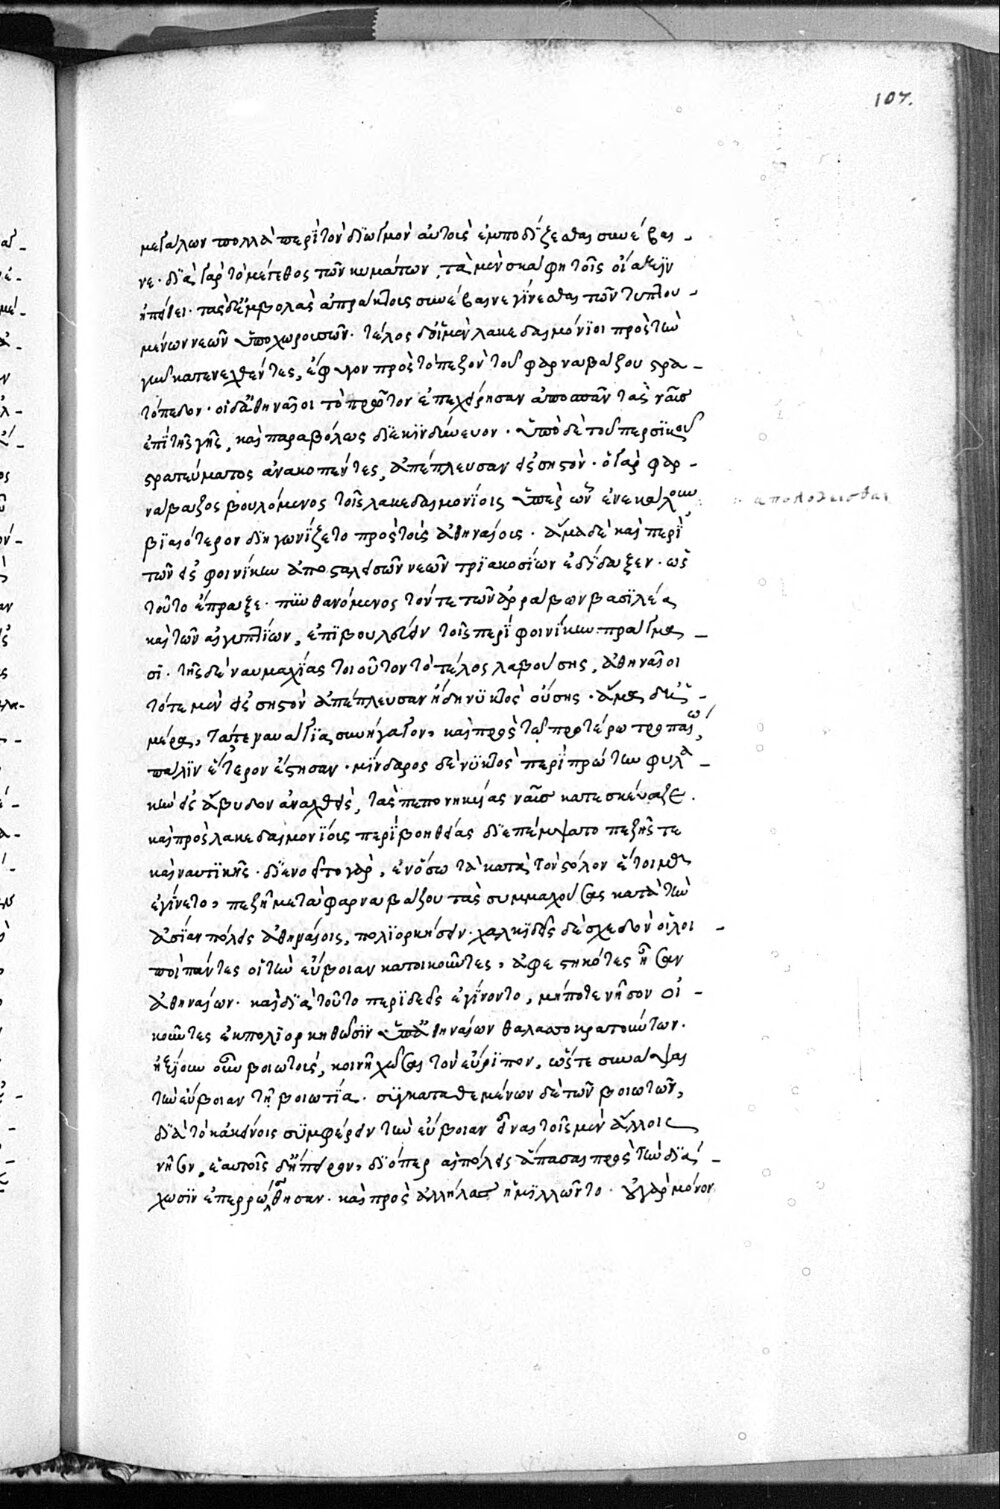 107.
μεγάλων πολλὰ περὶ τὸν διωγμὸν αὐτοῖς ἐμποδίζεσθαι συνέβαι-
νε· διὰ γὰρ τὸ μέγεθος τῶν κυμάτων, τὰ μὲν σκάφη τοῖς οἴαξιν
ἠπείθει· τὰς δ' ἐμβολὰς ἀπράκτοις συνέβαινε γίνεσθαι τῶν τυπτου-
μένων νεῶν ὑποχωρουσῶν· τέλος δ' οἱ μὲν λακεδαιμόνιοι πρὸς τὴν
γῆν κατενεχθέντες, ἔφυγον πρὸς τὸ πεζὸν τοῦ φαρναβάζου στρα-
τόπεδον· οἱ δ' ἀθηναῖοι τὸ πρῶτον ἐπεχείρησαν ἀποσπᾶν τὰς ναῦς
ἐπὶ τῆς γῆς, καὶ παραβόλως διεκινδύνευον· ὑπὸ δὲ τοῦ περσικοῦ
στρατεύματος ἀνακοπέντες, ἀπέπλευσαν εἰς σηστόν· ὁ γὰρ φαρ-
νάβαζος βουλόμενος τοῖς λακεδαιμονίοις ὑπὲρ ὧν ἐνεκάλουν
απολογεισθαι
βιαιότερον διηγωνίζετο πρὸς τοὺς ἀθηναίους· ἅμα δὲ καὶ περὶ
τῶν εἰς φοινίκην ἀποσταλεισῶν νεῶν τριακοσίων ἐδίδαξεν· ὡς
τοῦτο ἔπραξε· πυνθανόμενος τόν τε τῶν ἀρράβων βασιλέα
καὶ τῶν αἰγυπτίων, ἐπιβουλεύειν τοῖς περὶ φοινίκην πράγμα-
σι· τῆς δὲ ναυμαχίας τοιοῦτον τὸ τέλος λαβούσης, ἀθηναῖοι
τότε μὲν εἰς σηστὸν ἀπέπλευσαν ἤδη νυκτὸς οὔσης· ἅμα δ' ἡ-
μέρα, τά τε ναυάγια συνήγαγον, καὶ πρὸς τῷ προτέρω τροπαίω,
πάλιν ἕτερον ἔστησαν· μίνδαρος δὲ νυκτὸς περὶ πρώτην φυλα-
κὴν εἰς ἄβυδον ἀναχθεὶς, τὰς πεπονηκυίας ναῦς κατεσκεύαζε.
καὶ πρὸς λακεδαιμονίους περὶ βοηθείας διεπέμψατο πεζῆς τε
καὶ ναυτικῆς· διενοεῖτο γὰρ, ἐν ὅσω τὰ κατὰ τὸν στόλον ἕτοιμα
ἐγίνετο, πεζῆ μετὰ φαρναβάζου τὰς συμμαχούσας κατὰ τὴν
ἀσίαν πόλεις ἀθηναίοις, πολιορκήσειν· χαλκιδεῖς δὲ σχεδὸν οἱ λοι-
ποὶ πάντες οἱ τὴν εὔβοιαν κατοικοῦντες, ἀφεστηκότες ἦσαν
ἀθηναίων· καὶ διὰ τοῦτο περιδεεῖς ἐγίνοντο, μήποτε νῆσον οἰ-
κοῦντες ἐκπολιορκηθῶσιν ὑπὸ ἀθηναίων θαλασσοκρατούντων.
ἠξίουν οὖν βοιωτοὺς, κοινῆ χῶσαι τὸν εὔριπον, ὥστε συνάψαι
τὴν εὔβοιαν τῆ βοιωτία· συγκαταθεμένων δὲ τῶν βοιωτῶν,
διὰ τὸ κἀκείνοις συμφέρειν τὴν εὔβοιαν εἶναι τοῖς μὲν ἄλλοις
νῆσον, ἑαυτοῖς δ' ἤπειρον, διόπερ αἱ πόλεις ἅπασαι πρὸς τὴν διά-
χωσιν ἐπερρώσθησαν· καὶ πρὸς ἀλλήλας ἡμιλλῶντο· οὐ γὰρ μόνον